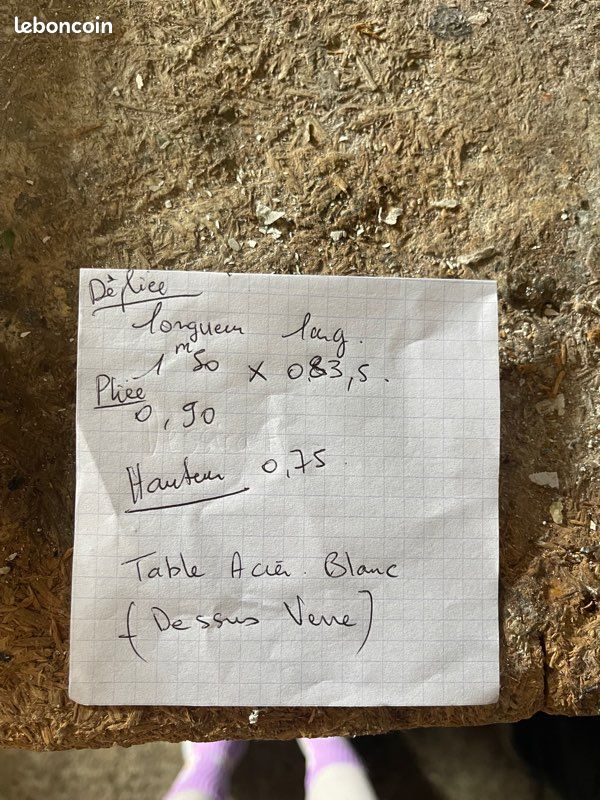 leboncoin
Dépliée
longueur larg.
1 m 50 x 083,5.
Pliée
0,90
Hauteur 0,75
Table Acier. Blanc
(Dessus Verre)